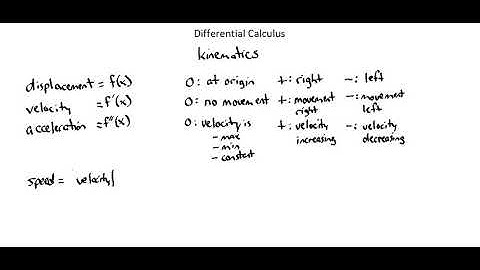 Differential Calculus
kinematics
displacement = f(x) 0: at origin +: right -: left
velocity = f'(x) 0: no movement +: movement right -: movement left
acceleration = f''(x) 0: velocity is +: velocity increasing -: velocity decreasing
- max
- min
- constant
speed = velocity|